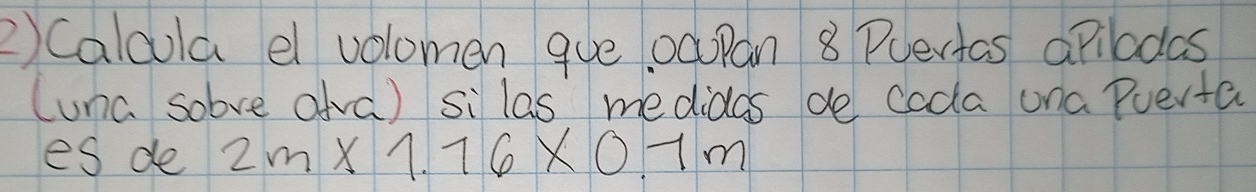 2) Calcula el volomen que ocupan 8 Puertas apiladas
(una sobre otra) si las medidas de cada una Puerta
es de 2m x 1.16 x 0.1m